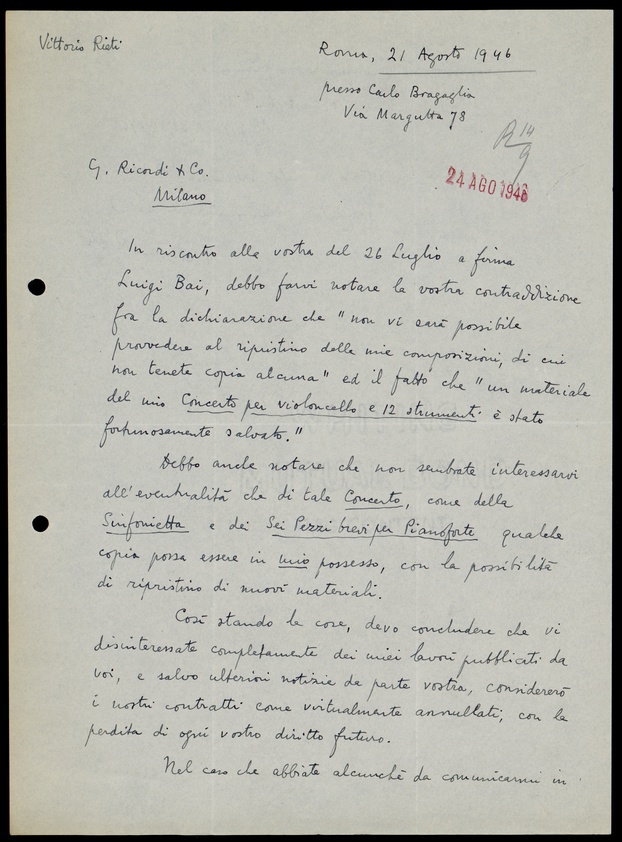 Vittorio Rieti
Roma, 21 Agosto 1946
presso Carlo Bragaglia
Via Margutta 78
R 14/9
24 AGO 1946
G. Ricordi & Co.
Milano
In riscontro alla vostra del 26 Luglio a firma
Luigi Bai, debbo farvi notare la vostra contraddizione
fra la dichiarazione che "non vi sarà possibile
provvedere al ripristino delle mie composizioni, di cui
non tenete copia alcuna" ed il fatto che "un materiale
del mio Concerto per violoncello e 12 strumenti è stato
fortunosamente salvato."
Debbo anche notare che non sembrate interessarvi
all'eventualità che di tale Concerto, come della
Sinfonietta e dei Sei Pezzi brevi per Pianoforte qualche
copia possa essere in mio possesso, con la possibilità
di ripristino di nuovi materiali.
Così stando le cose, devo concludere che vi
disinteressate completamente dei miei lavori pubblicati da
voi, e salvo ulteriori notizie da parte vostra, considererò
i nostri contratti come virtualmente annullati, con la
perdita di ogni vostro diritto futuro.
Nel caso che abbiate alcunché da comunicarmi in